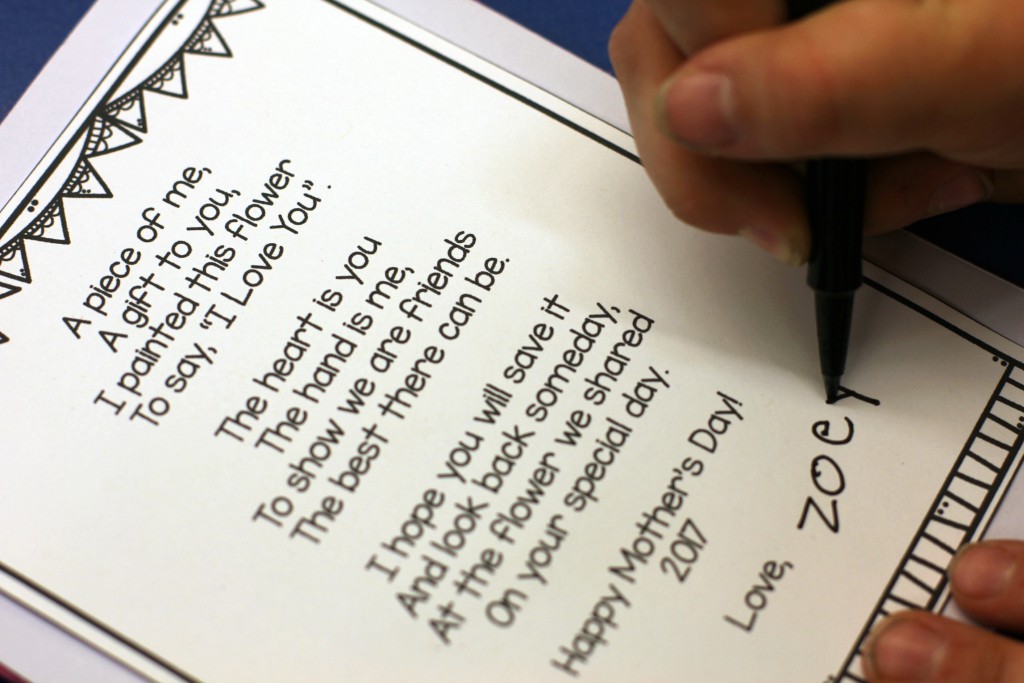 A piece of me,
A gift to you,
I painted this flower
To say, "I Love You".
The heart is you
The hand is me,
To show we are friends
The best there can be.
I hope you will save it
And look back someday,
At the flower we shared
On your special day.
Happy Mother's Day!
2017
Love, zoey